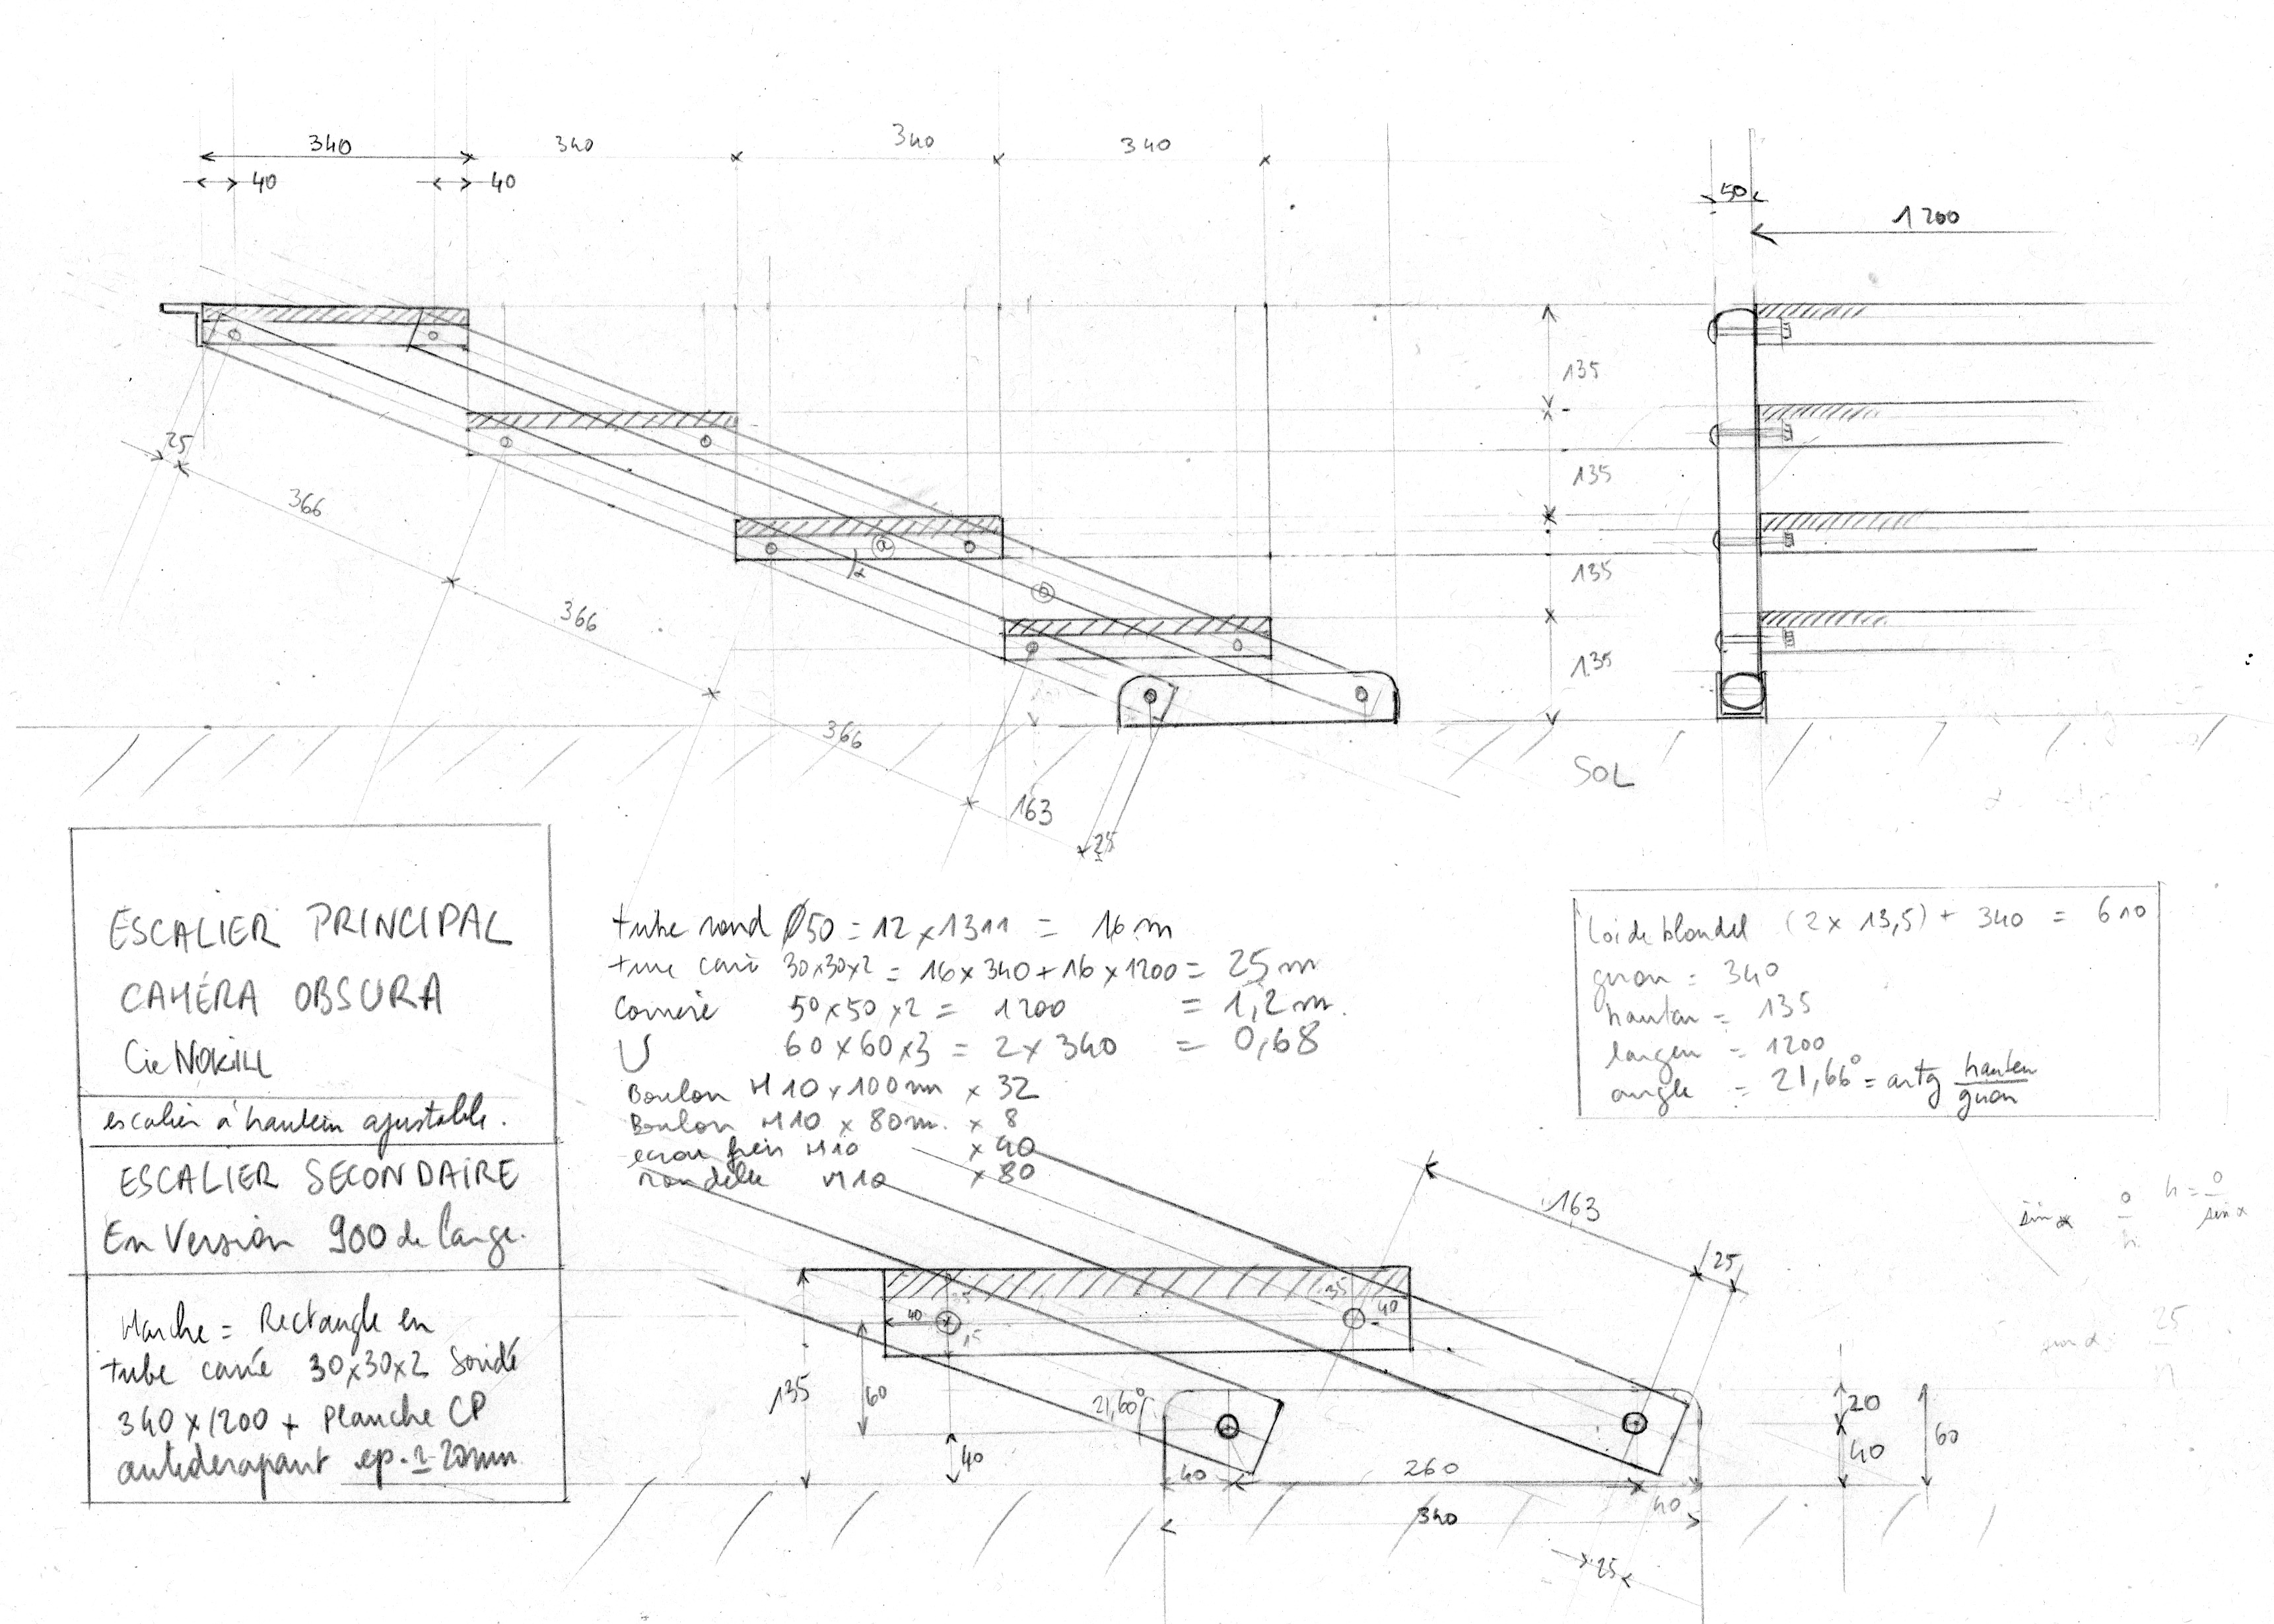 340
340
340
340
40
40
50
1200
135
135
135
135
25
366
366
366
163
25
a
α
SOL
ESCALIER PRINCIPAL
CAMÉRA OBSURA
Cie NOKILL
escalier à hauteur ajustable.
ESCALIER SECONDAIRE
En Version 900 de large.
Marche = Rectangle en
tube carrée 30x30x2 Soudé
340 x 1200 + Planche CP
antidérapant ep. 20mm
tube rond Ø50 = 12 x 1311 = 16 m
tube carré 30x30x2 = 16 x 340 + 16 x 1200 = 25 m
Cornière 50x50x2 = 1200 = 1,2 m.
U 60x60x3 = 2 x 340 = 0,68
Boulon M10 x 100 mm x 32
Boulon M10 x 80 m. x 8
ecrou frein M10 x 40
rondelle M10 x 80
loi de blondel (2 x 13,5) + 340 = 610
giron = 340
hauteur = 135
largeur = 1200
angle = 21,66° = artg hauteur / giron
163
25
sin α o/h h = o/sin α
35
35
40
40
15
135
60
21,60°
40
40
260
40
340
25
20
40
60
25